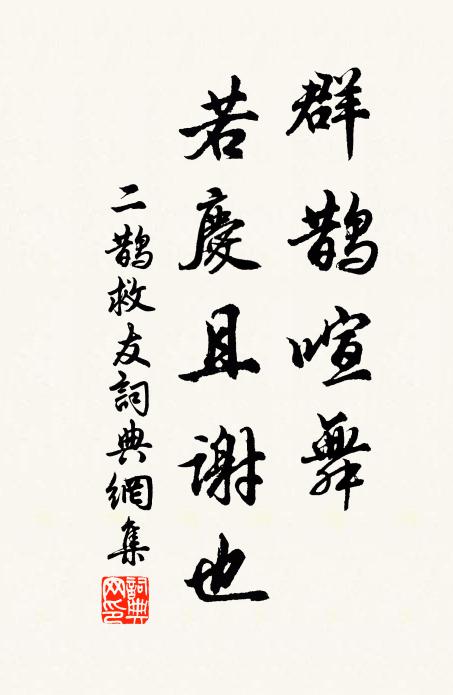 群鹊喧舞
若慶且謝也
二鹊救友詞典網集
詞典网印